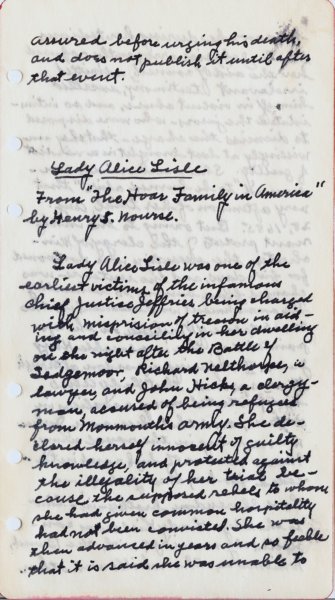 assured before urging his death,
and does not publish it until after
that event.
Lady Alice Lisle
From "The Hoar Family in America"
by Henry S. Nourse.
Lady Alice Lisle was one of the
earliest victims of the infamous
Chief Justice Jeffries being charged
with misprision of treason in aid-
ing and concealing in her dwelling
on the night after the Battle of
Sedgemoor, Richard Nelthorpe, a
lawyer, and John Hicks, a clergy-
man, accused of being refugees
from Monmouth's army. She de-
clared herself innocent of guilty
knowledge, and protested against
the illegality of her trial be-
cause the supposed rebels to whom
she had given common hospitality
had not been convicted. She was
then advanced in years and so feeble
that it is said she was unable to